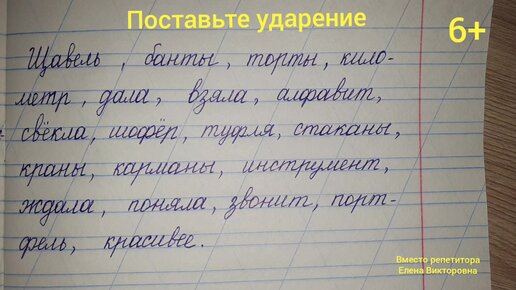 Поставьте ударение
6+
Щавель, банты, торты, кило-
метр, дала, взяла, алфавит,
свёкла, шофёр, туфля, стаканы,
краны, карманы, инструмент,
ждала, поняла, звонит, порт-
фель, красивее.
Вместо репетитора
Елена Викторовна